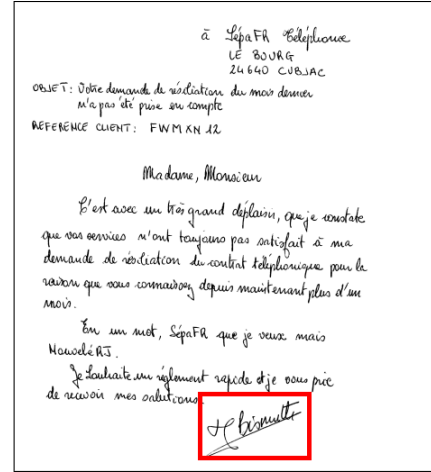 à SépaFR Téléphone
LE BOURG
24640 CUBJAC
OBJET: Votre demande de résiliation du mois dernier
n'a pas été prise en compte
REFERENCE CLIENT: FWMXN 12
Madame, Monsieur
C'est avec un très grand déplaisir, que je constate
que vos services n'ont toujours pas satisfait à ma
demande de résiliation du contrat téléphonique pour la
raison que vous connaissez depuis maintenant plus d'un
mois.
En un mot, SépaFR que je veux mais
NouveléRJ.
Je souhaite un règlement rapide et je vous prie
de recevoir mes salutions
Bismuth